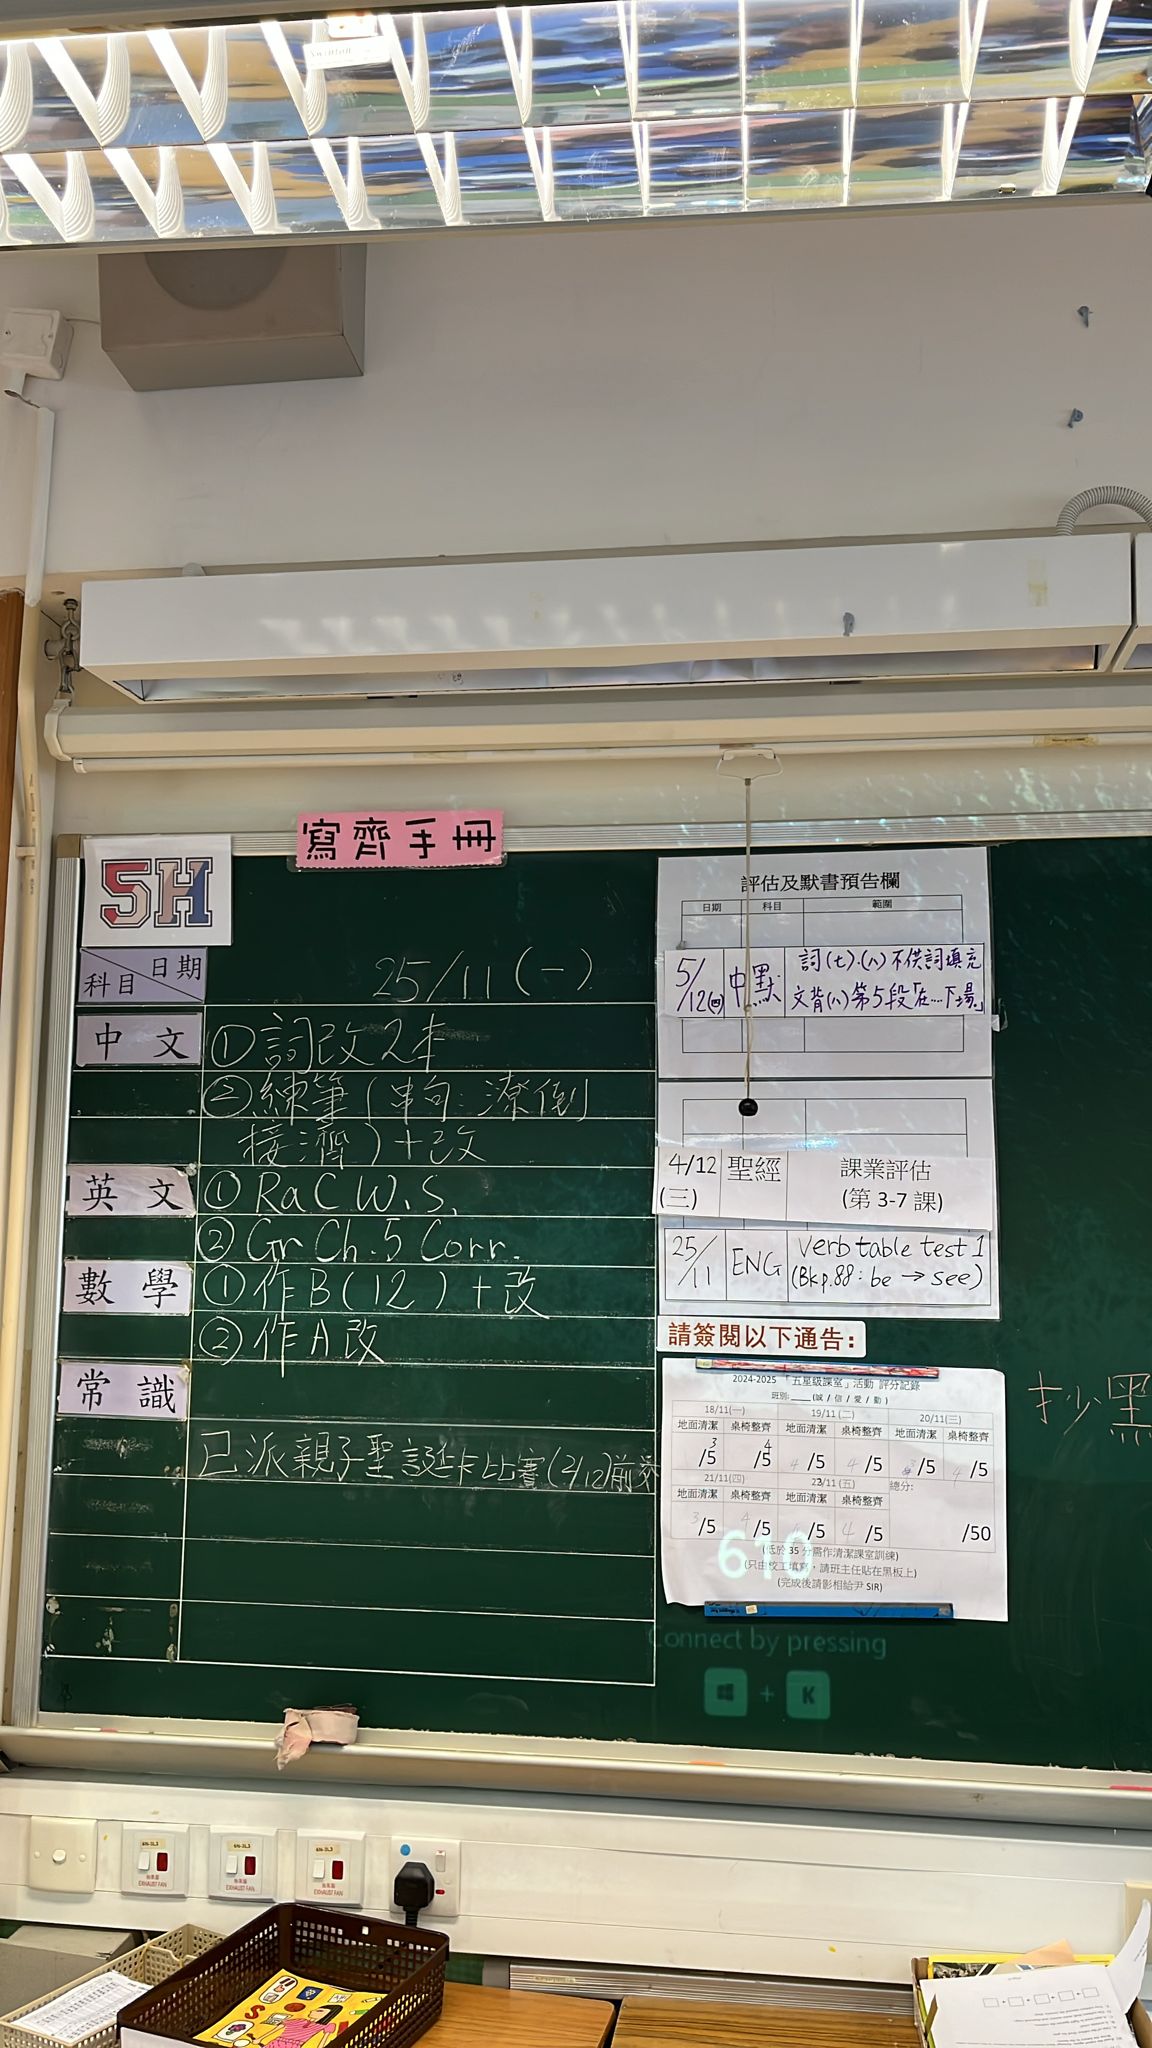 寫齊手冊
5H
日期
科目
25/11 (一)
中文
①詞改2本
②練筆(串句:潦倒
接濟)+改
英文
①RaC W.S.
②Gr Ch.5 Corr.
數學
①作B(12)+改
②作A改
常識
已派親子聖誕卡比賽(2/12)前交
評估及默書預告欄
日期 科目 範圍
5/12(四) 中默 詞(七)、(八)不供詞填充
文背(八)第5段「在....下場。」
4/12 聖經 課業評估
(三) (第 3-7 課)
25/11 ENG Verb table test 1
(Bk p.88: be → see)
請簽閱以下通告:
2024-2025 「五星級課室」活動 評分記錄
班別:____ (誠 / 信 / 愛 / 勤)
18/11(一) 19/11(二) 20/11(三)
地面清潔 桌椅整齊 地面清潔 桌椅整齊 地面清潔 桌椅整齊
3/5 4/5 4/5 4/5 /5 4/5
21/11(四) 22/11(五) 總分:
地面清潔 桌椅整齊 地面清潔 桌椅整齊
3/5 4/5 /5 4/5 /50
(低於 35 分需作清潔課室訓練)
(只由校工填寫,請班主任貼在黑板上)
(完成後請影相給尹 SIR)
610
Connect by pressing
+ K
抄黑
EXHAUST FAN
EXHAUST FAN
EXHAUST FAN